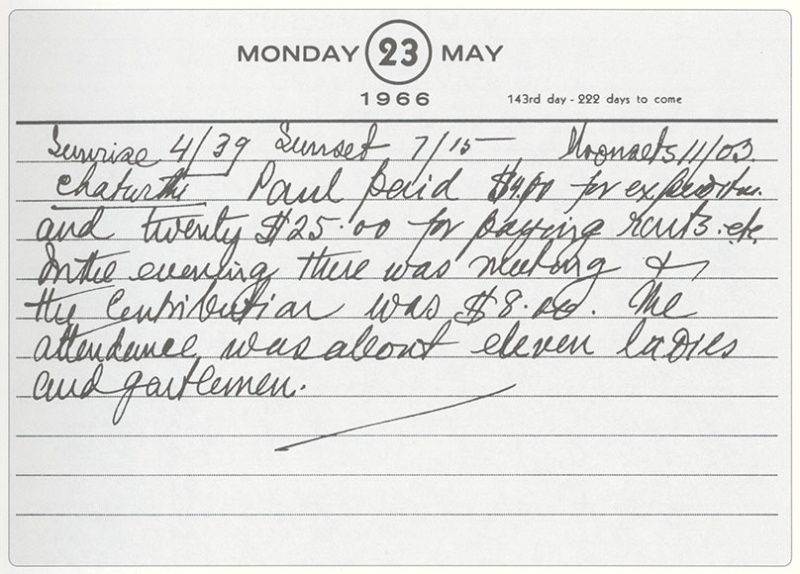 MONDAY 23 MAY
1966
143rd day - 222 days to come
Sunrise 4/39 Sunset 7/15 Moonsets 11/03
Chaturthi Paul paid $4.00 for expenditur
and twenty $25.00 for paying rents. etc.
In the evening there was meeting &
the Contribution was $8.00. The
attendance was about eleven ladies
and gentlemen.